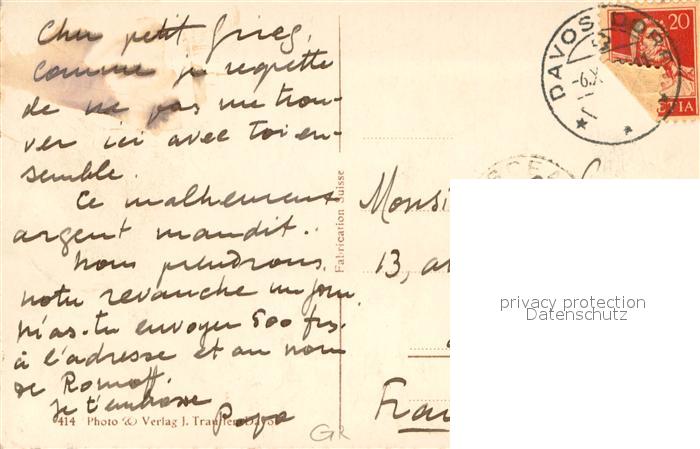 Cher petit Grieg,
Comme je regrette
de ne pas me trou-
ver ici avec toi en-
semble.
Ce malheureux
argent maudit..
Nous prendrons
notre revanche un jour.
M'as-tu envoyer 500 frs.
à l'adresse et au nom
de Romoff.
je t'embrasse
Papa
414 Photo & Verlag J. Trauffer, Davos
GR
Fabrication Suisse
DAVOS DORF
-6.X
20
Monsi
13, a
Fra
privacy protection
Datenschutz